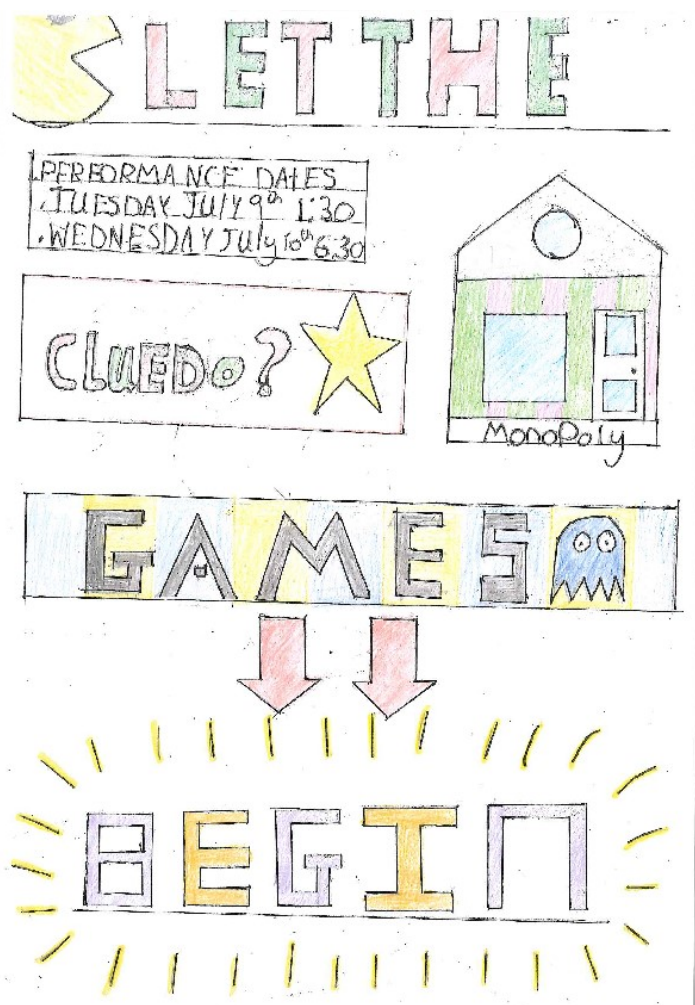 LET THE
PERFORMANCE DATES
.TUESDAY JUlY 9th 1:30
.WEDNESDAY July 10th 6:30
CLUEDo?
MonoPoly
GAMES
BEGIn